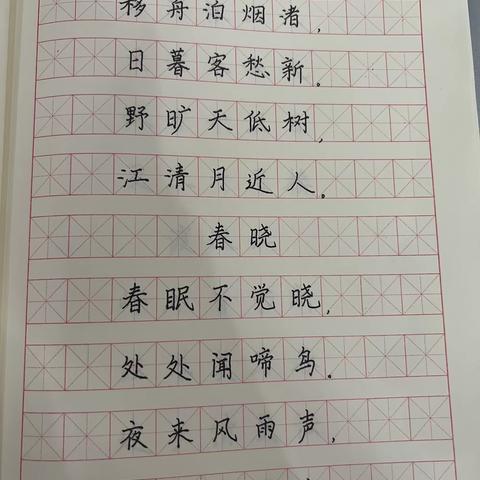 移舟泊烟渚,
日暮客愁新。
野旷天低树,
江清月近人。
春晓
春眠不觉晓,
处处闻啼鸟。
夜来风雨声,